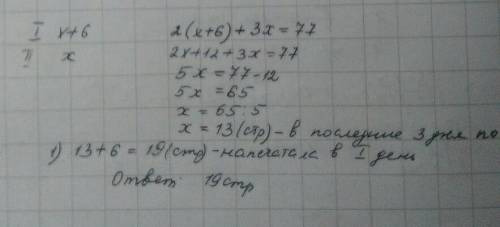 I x+6 2(x+6)+3x=77
II x 2x+12+3x=77
5x=77-12
5x=65
x=65:5
x=13(стр)-в последние 3 дня по
1) 13+6=19(стр)-напечатала в I день
Ответ: 19стр